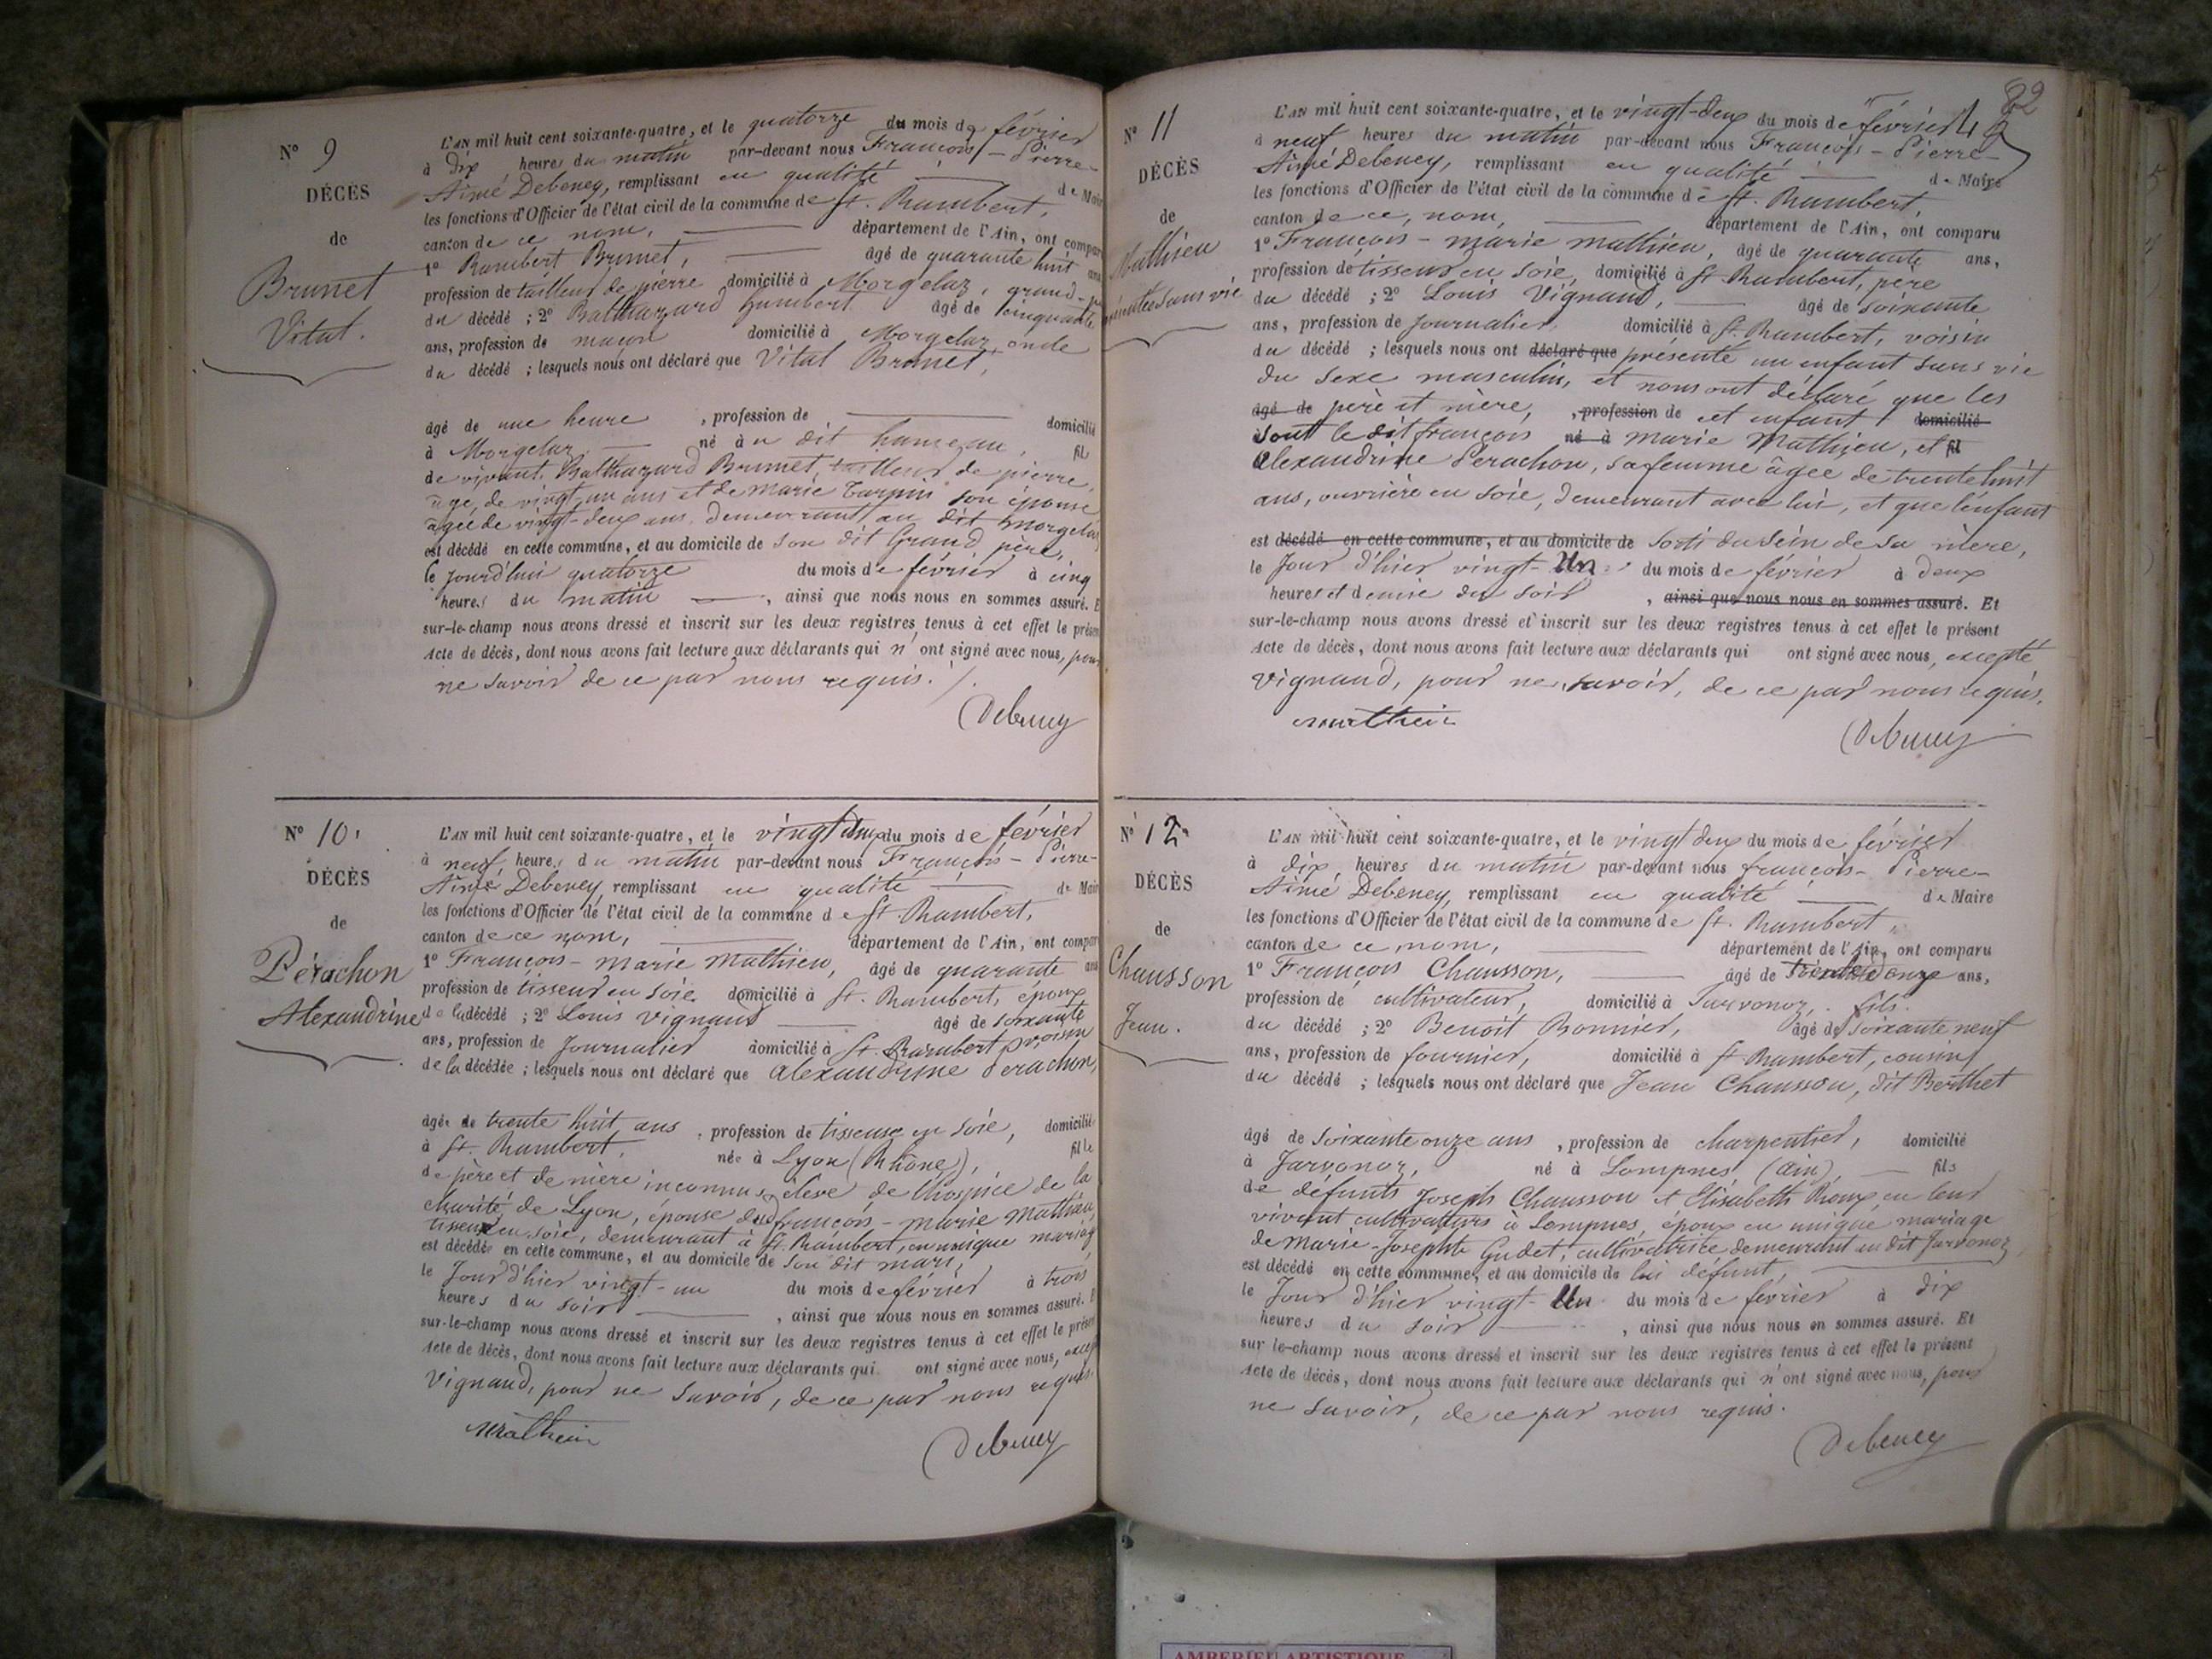 N° 9
DÉCÈS
de
Brunet
Vital.
L'AN mil huit cent soixante-quatre, et le quatorze du mois de février
à dix heures du matin par-devant nous François-Pierre-
Aimé Debeney, remplissant en qualité de Mair
les fonctions d'Officier de l'état civil de la commune de St. Rambert,
canton de ce nom, département de l'Ain, ont compar
1° Rambert Brunet, âgé de quarante huit ans
profession de tailleur de pierre domicilié à Morgelaz, grand-p
du décédé ; 2° Balthazard humbert âgé de cinquante
ans, profession de maçon domicilié à Morgelaz, oncle
du décédé ; lesquels nous ont déclaré que Vital Brunet,
âgé de une heure , profession de domicilié
à Morgelaz né au dit hameau, fil
de vivant Balthazard Brunet, tailleur de pierre,
âgé, de vingt-un ans et de Marie Tarpin son épouse
âgée de vingt-deux ans, demeurant au dit Morgelaz
est décédé en cette commune, et au domicile de son dit Grand père,
le jourd'hui quatorze du mois de février à cinq
heures du matin , ainsi que nous nous en sommes assuré. E
sur-le-champ nous avons dressé et inscrit sur les deux registres tenus à cet effet le présen
Acte de décès, dont nous avons fait lecture aux déclarants qui n'ont signé avec nous, pour
ne savoir de ce par nous requis. /.
Debeney
N° 10
DÉCÈS
de
Pérachon
Alexandrine
L'AN mil huit cent soixante-quatre, et le vingt deux du mois de février
à neuf heures du matin par-devant nous François-Pierre-
Aimé Debeney, remplissant en qualité de Mair
les fonctions d'Officier de l'état civil de la commune de St. Rambert,
canton de ce nom, département de l'Ain, ont compar
1° François-marie Mathieu, âgé de quarante ans
profession de tisseur en soie domicilié à St. Rambert, époux
de la décédé ; 2° Louis Vignand âgé de soixante
ans, profession de Journalier domicilié à St. Rambert voisin
de la décédée ; lesquels nous ont déclaré que Alexandrine Pérachon,
âgée de trente huit ans , profession de tisseuse en soie, domicilié
à St. Rambert, née à Lyon (Rhône), fille
de père et de mère inconnus, élève de l'hospice de la
charité de Lyon, épouse dudt françois-marie Mathieu,
tisseur en soie, demeurant à St. Rambert, en unique mariag
est décédée en cette commune, et au domicile de son dit mari,
le Jour d'hier vingt-un du mois de février à trois
heures du soir , ainsi que nous nous en sommes assuré. E
sur-le-champ nous avons dressé et inscrit sur les deux registres tenus à cet effet le présen
Acte de décès, dont nous avons fait lecture aux déclarants qui ont signé avec nous, excep
Vignand, pour ne savoir, de ce par nous requis.
Mathieu
Debeney
82
N° 11
DÉCÈS
de
Mathieu
présenté sans vie
L'AN mil huit cent soixante-quatre, et le vingt-deux du mois de février
à neuf heures du matin par-devant nous François-Pierre-
Aimé Debeney, remplissant en qualité de Maire
les fonctions d'Officier de l'état civil de la commune de St. Rambert,
canton de ce, nom, département de l'Ain, ont comparu
1° François-marie mathieu, âgé de quarante ans,
profession de tisseur en soie, domicilié à St. Rambert, père
du décédé ; 2° Louis Vignand, âgé de soixante
ans, profession de Journalier, domicilié à St. Rambert, voisin
du décédé ; lesquels nous ont déclaré que présenté un enfant sans vie
du sexe masculin, et nous ont déclaré que les
âgé de père et mère, , profession de cet enfant domicilié
sont le dit françois né à marie Mathieu, et fil
Alexandrine Perachon, sa femme âgée de trente huit
ans, ouvrière en soie, demeurant avec lui, et que l'enfant
est décédé en cette commune, et au domicile de sorti du sein de sa mère,
le Jour d'hier vingt-Un du mois de février à deux
heures et demie du soir , ainsi que nous nous en sommes assuré. Et
sur-le-champ nous avons dressé et inscrit sur les deux registres tenus à cet effet le présent
Acte de décès, dont nous avons fait lecture aux déclarants qui ont signé avec nous, excepté
Vignand, pour ne savoir, de ce par nous requis.
Mathieu
Debeney
N° 12
DÉCÈS
de
Chausson
Jean.
L'AN mil huit cent soixante-quatre, et le vingt deux du mois de février
à dix heures du matin par-devant nous françois-Pierre-
Aimé Debeney, remplissant en qualité de Maire
les fonctions d'Officier de l'état civil de la commune de St. Rambert,
canton de ce nom, département de l'Ain, ont comparu
1° François Chausson, âgé de ans,
profession de cultivateur, domicilié à Jarvonoz, fils
du décédé ; 2° Benoit Bonnier, âgé de soixante neuf
ans, profession de fournier, domicilié à St Rambert, cousin
du décédé ; lesquels nous ont déclaré que Jean Chausson, dit Berthet
âgé de soixante onze ans , profession de charpentier, domicilié
à Jarvonoz, né à Lompnes (Ain), fils
de défunts Joseph Chausson et Elisabeth Roux, en leur
vivant cultivateurs à Lompnes, époux en unique mariage
de Marie-Josephte Gudet, cultivatrice demeurant au dit Jarvonoz
est décédé en cette commune, et au domicile de lui défunt,
le Jour d'hier vingt-Un du mois de février à dix
heures du soir , ainsi que nous nous en sommes assuré. Et
sur-le-champ nous avons dressé et inscrit sur les deux registres tenus à cet effet le présent
Acte de décès, dont nous avons fait lecture aux déclarants qui n'ont signé avec nous, pour
ne savoir, de ce par nous requis.
Debeney
AMBERIEU ARTISTIQUE